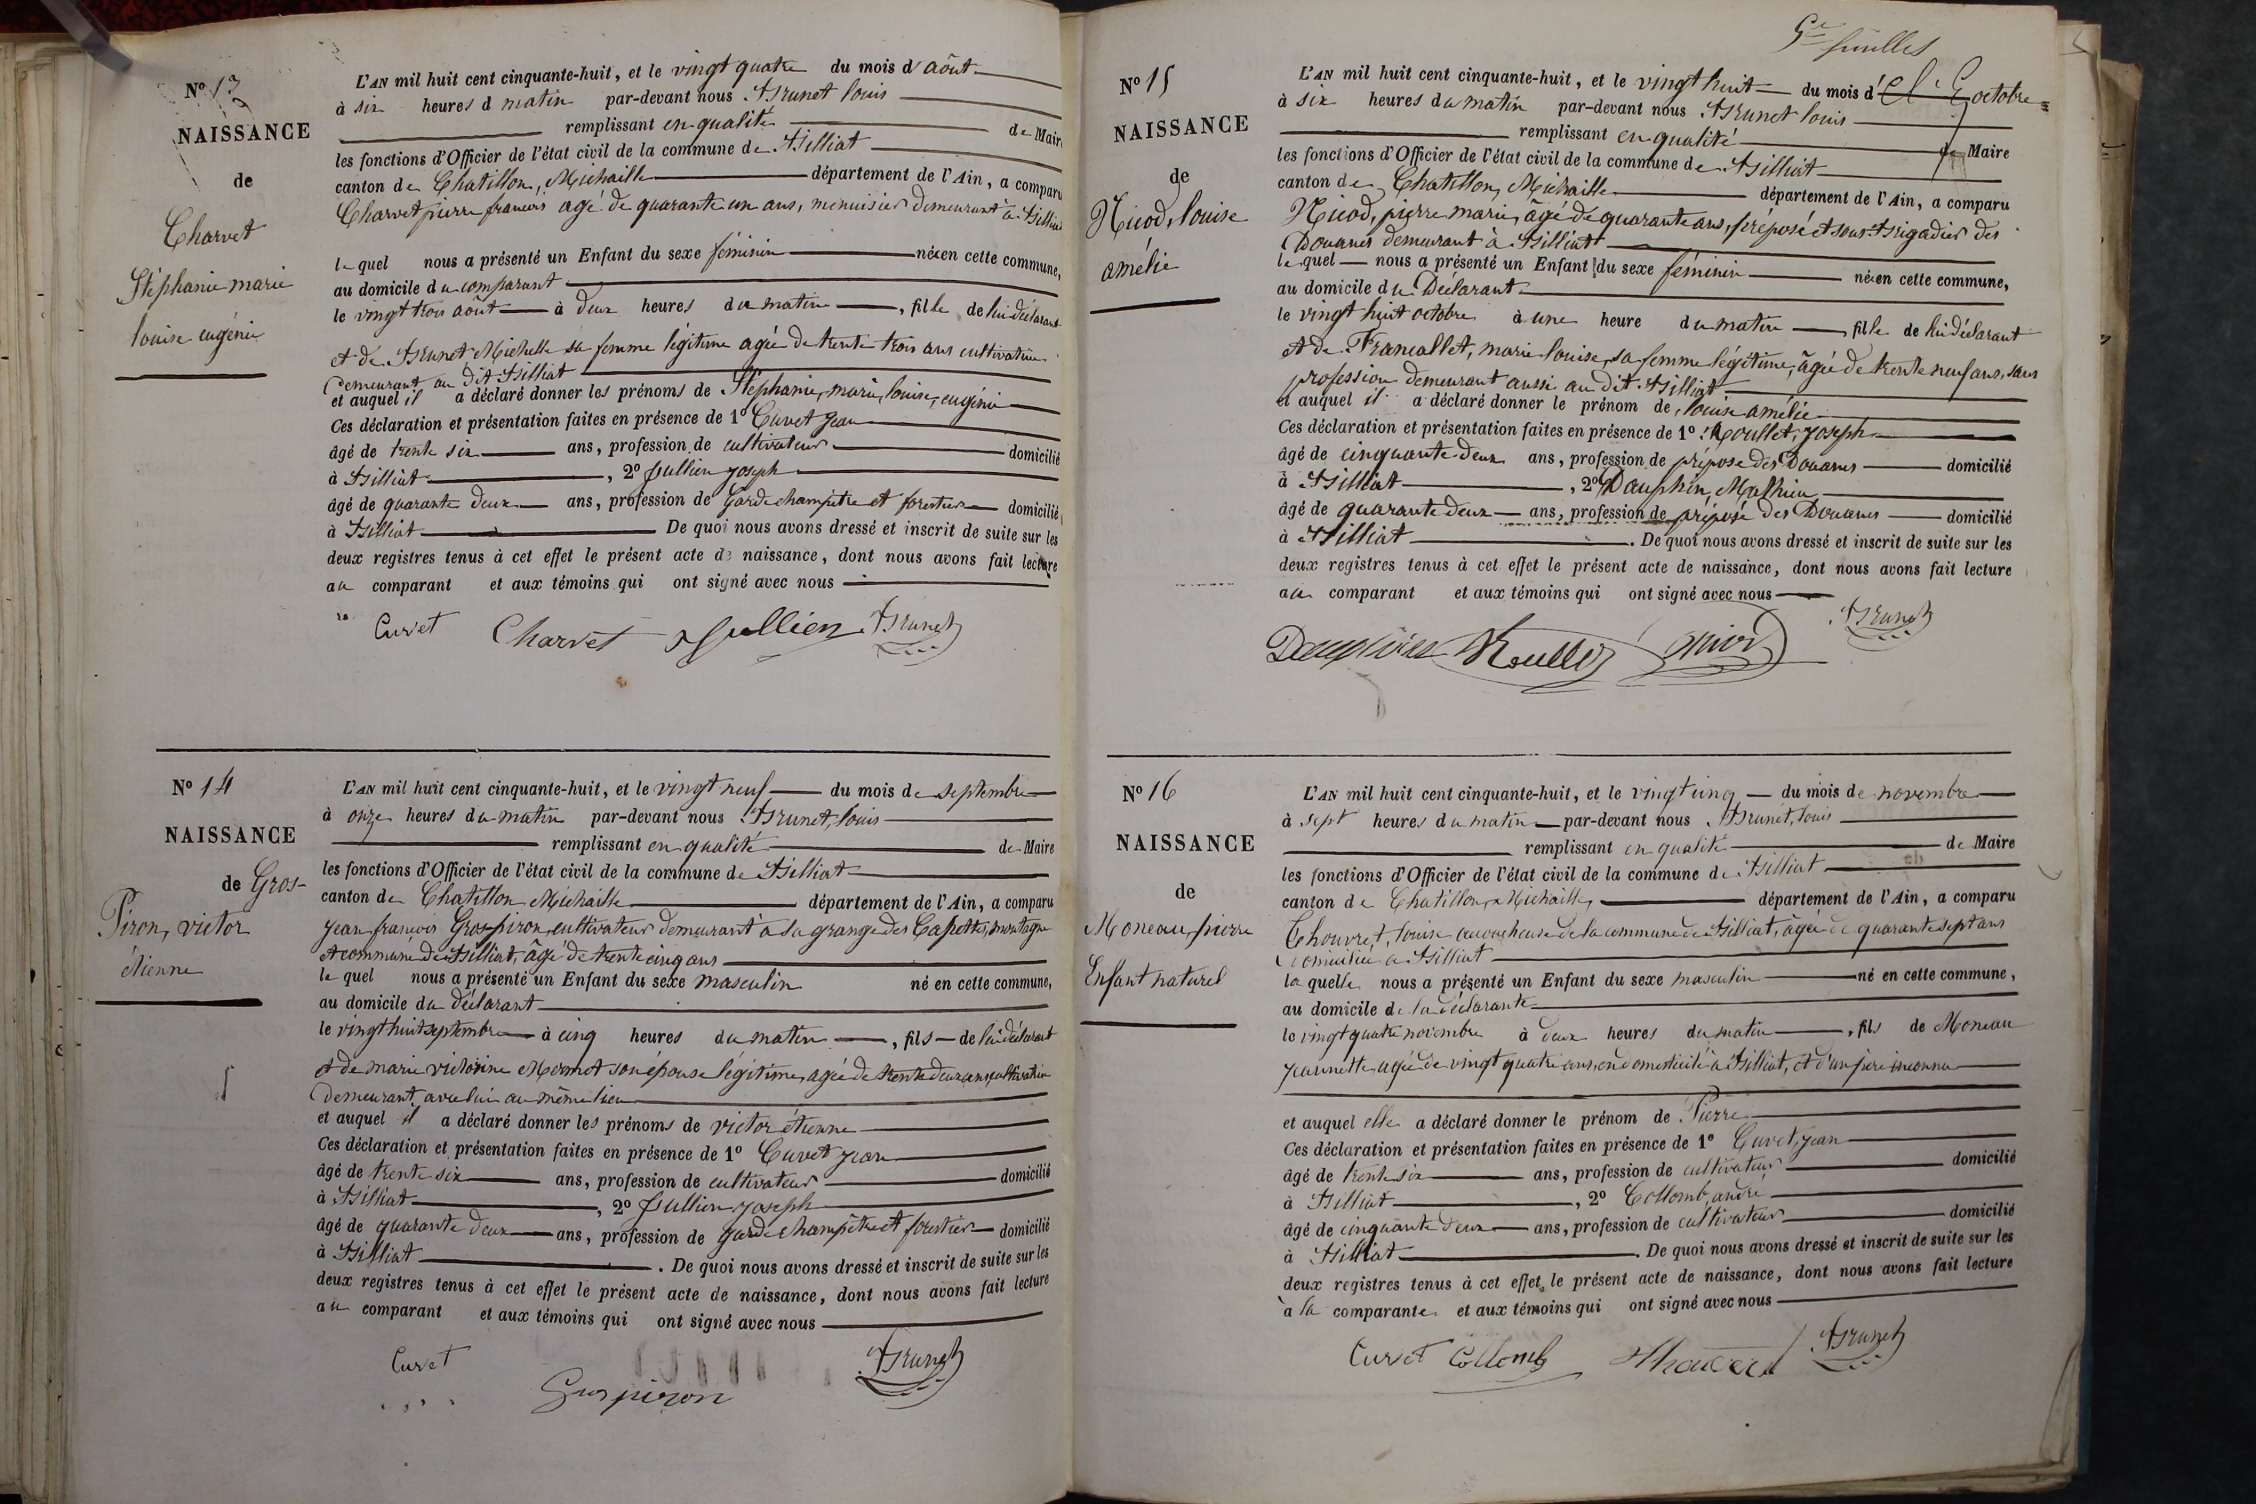 N° 13
NAISSANCE
de
Charvet
Stéphanie marie
louise eugénie
L'AN mil huit cent cinquante-huit, et le vingt quatre du mois d'août
à six heures d matin par-devant nous Brunet louis
remplissant en qualité de Maire
les fonctions d'Officier de l'état civil de la commune de Billiat
canton de Chatillon, Michaille département de l'Ain, a comparu
Charvet pierre francois agé de quarante un ans, menuisier demeurant à Billiat
le quel nous a présenté un Enfant du sexe féminin née en cette commune,
au domicile du comparant
le vingt trois août à deux heures du matin, fille de lui déclarant
et de Brunet Michelle sa femme légitime agée de trente trois ans cultivatrice
demeurant au dit Billiat
et auquel il a déclaré donner les prénoms de Stéphanie, marie, louise, eugénie
Ces déclaration et présentation faites en présence de 1° Curvet jean
âgé de trente six ans, profession de cultivateur domicilié
à Billiat, 2° Jullien joseph
âgé de quarante deux ans, profession de Garde champêtre et forestier domicilié
à Billiat De quoi nous avons dressé et inscrit de suite sur les
deux registres tenus à cet effet le présent acte de naissance, dont nous avons fait lecture
au comparant et aux témoins qui ont signé avec nous
Curvet Charvet Jullien Brunet
N° 14
NAISSANCE
de Gros-
Piron, victor
étienne
L'AN mil huit cent cinquante-huit, et le vingt neuf du mois de septembre
à onze heures du matin par-devant nous Brunet, louis
remplissant en qualité de Maire
les fonctions d'Officier de l'état civil de la commune de Billiat
canton de Chatillon Michaille département de l'Ain, a comparu
jean francois Grospiron, cultivateur demeurant à la grange des Capettes, montagne
et commune de Billiat, âgé de trente cinq ans
le quel nous a présenté un Enfant du sexe masculin né en cette commune,
au domicile du déclarant
le vingt huit septembre à cinq heures du matin, fils de lui déclarant
et de marie victorine Mermet son épouse légitime, agée de trente deux ans, cultivatrice
demeurant, avec lui au même lieu
et auquel il a déclaré donner les prénoms de victor étienne
Ces déclaration et présentation faites en présence de 1° Curvet jean
âgé de trente six ans, profession de cultivateur domicilié
à Billiat, 2° Jullien joseph
âgé de quarante deux ans, profession de garde champêtre et forestier domicilié
à Billiat. De quoi nous avons dressé et inscrit de suite sur les
deux registres tenus à cet effet le présent acte de naissance, dont nous avons fait lecture
au comparant et aux témoins qui ont signé avec nous
Curvet Grospiron Brunet
5e feuillet
N° 15
NAISSANCE
de
Nicod, louise
amélie
L'AN mil huit cent cinquante-huit, et le vingt huit du mois d' octobre
à six heures du matin par-devant nous Brunet louis
remplissant en qualité de Maire
les fonctions d'Officier de l'état civil de la commune de Billiat
canton de Chatillon, Michaille département de l'Ain, a comparu
Nicod, pierre marie, âgé de quarante ans, préposé et sous-brigadier des
Douanes demeurant à Billiat
le quel nous a présenté un Enfant du sexe féminin née en cette commune,
au domicile du Déclarant
le vingt huit octobre à une heure du matin, fille de lui déclarant
et de Francallet, marie louise, sa femme légitime, âgée de trente neuf ans, sans
profession demeurant aussi au dit Billiat
et auquel il a déclaré donner le prénom de, louise amélie
Ces déclaration et présentation faites en présence de 1° Roullet, joseph
âgé de cinquante deux ans, profession de préposé des Douanes domicilié
à Billiat, 2° Dauphin, Mathieu
âgé de quarante deux ans, profession de préposé des Douanes domicilié
à Billiat. De quoi nous avons dressé et inscrit de suite sur les
deux registres tenus à cet effet le présent acte de naissance, dont nous avons fait lecture
au comparant et aux témoins qui ont signé avec nous
Dauphin Roullet Nicod Brunet
N° 16
NAISSANCE
de
Moneau, pierre
Enfant naturel
L'AN mil huit cent cinquante-huit, et le vingt cinq du mois de novembre
à sept heures du matin par-devant nous Brunet, louis
remplissant en qualité de Maire
les fonctions d'Officier de l'état civil de la commune de Billiat
canton de Chatillon, Michaille, département de l'Ain, a comparu
louise accoucheuse de la commune de Billiat, âgée de quarante sept ans
domiciliée à Billiat
la quelle nous a présenté un Enfant du sexe masculin né en cette commune,
au domicile de la déclarante
le vingt quatre novembre à deux heures du matin, fils de Moneau
jeannette, agée de vingt quatre ans, en domesticité à Billiat, et d'un père inconnu
et auquel elle a déclaré donner le prénom de Pierre
Ces déclaration et présentation faites en présence de 1° Curvet, jean
âgé de trente six ans, profession de cultivateur domicilié
à Billiat, 2° Collomb, andré
âgé de cinquante deux ans, profession de cultivateur domicilié
à Billiat. De quoi nous avons dressé et inscrit de suite sur les
deux registres tenus à cet effet, le présent acte de naissance, dont nous avons fait lecture
à la comparante et aux témoins qui ont signé avec nous
Curvet Collomb Brunet